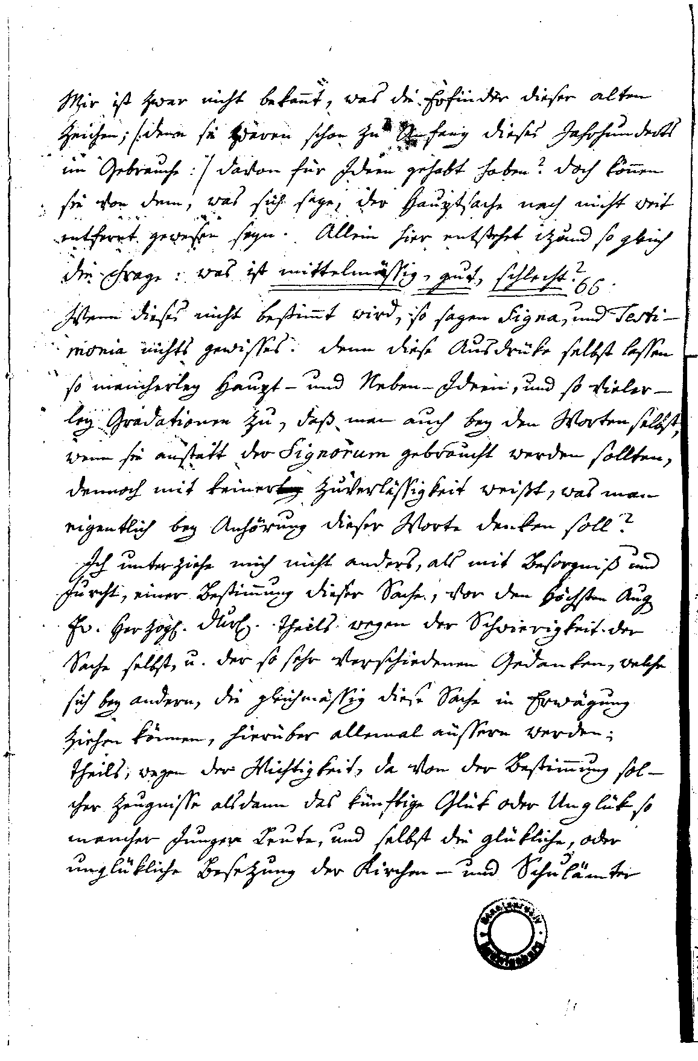 Mir ist zwar nicht bekannt, was die Erfinder dieser alten
Zeichen; /:denn sie wären schon zu Anfang dieses Jahrhunderts
im Gebrauche:/ davon für Ideen gehabt haben? doch können
sie von dem, was ich sage, der Hauptsache nach nicht weit
entfernt gewesen seyn. Allein hier entstehet izund so gleich
die Frage: was ist mittelmässig, gut, schlecht?
Wenn dieses nicht bestimmt wird, so sagen Signa, und Testi-
monia nichts gewisses. denn diese Ausdrüke selbst lassen
so mancherley Haupt- und Neben-Ideen, und so vieler-
ley Gradationen zu, daß man auch bey den Worten selbst,
wenn sie anstatt der Signorum gebraucht werden sollten,
dennoch mit keiner Zuverlässigkeit weißt, was man
eigentlich bey Anhörung dieser Worte denken soll?
Ich unterziehe mich nicht anders, als mit Besorgniß und
Furcht, einer Bestimmung dieser Sache, vor den höchsten Aug
Ew. Herzogl. Durchl. theils wegen der Schwierigkeit der
Sache selbst, u. der so sehr verschiedenen Gedanken, welche
sich bey andern, die gleichmässig diese Sache in Erwägung
ziehen können, hierüber allemal äussern werden;
theils, wegen der Wichtigkeit, da von der Bestimmung sol-
cher Zeugnisse alsdann das künftige Glük oder Unglük so
mancher Junger Leute, und selbst die glükliche, oder
unglükliche Besetzung der Kirchen- und Schulämter
Staatsarchiv
Ludwigsburg